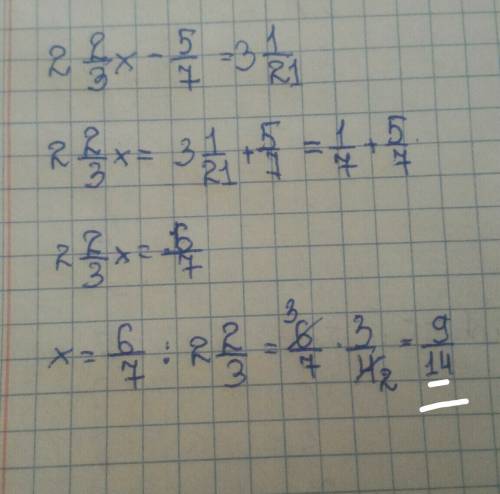 2 2/3 x - 5/7 = 3 1/21
2 2/3 x = 3 1/21 + 5/7 = 1/7 + 5/7
2 2/3 x = 6/7
x = 6/7 : 2 2/3 = 6/7 3 · 3/4 2 = 9/14